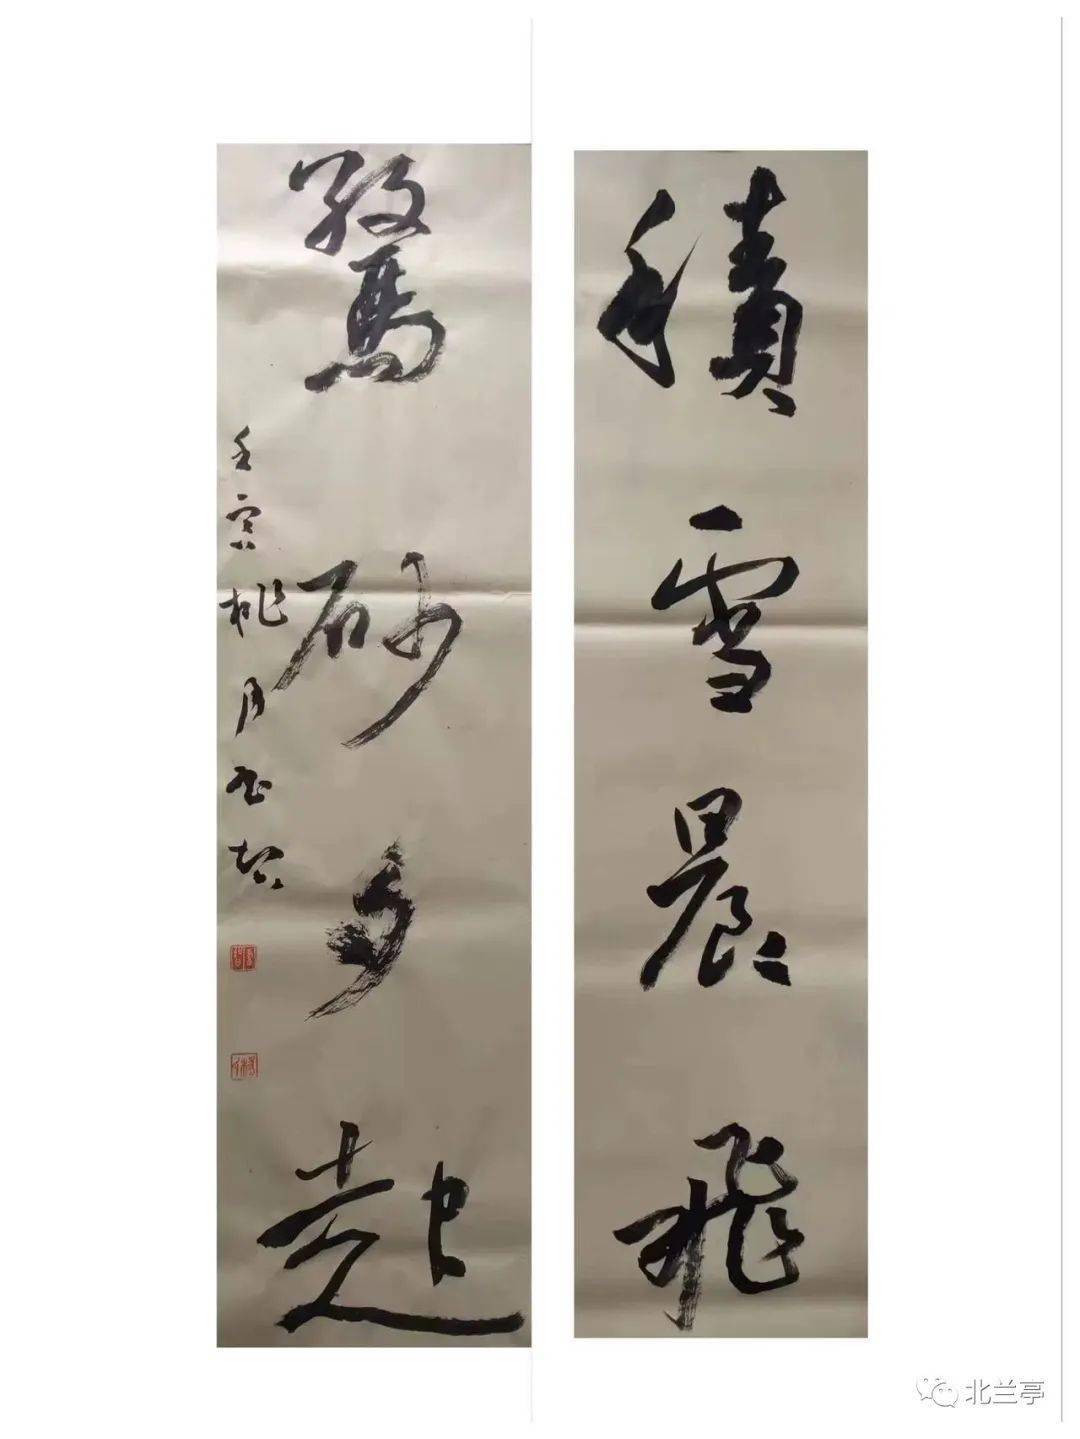 積雪晨飛
驚砂夕起
壬寅桃月
北兰亭